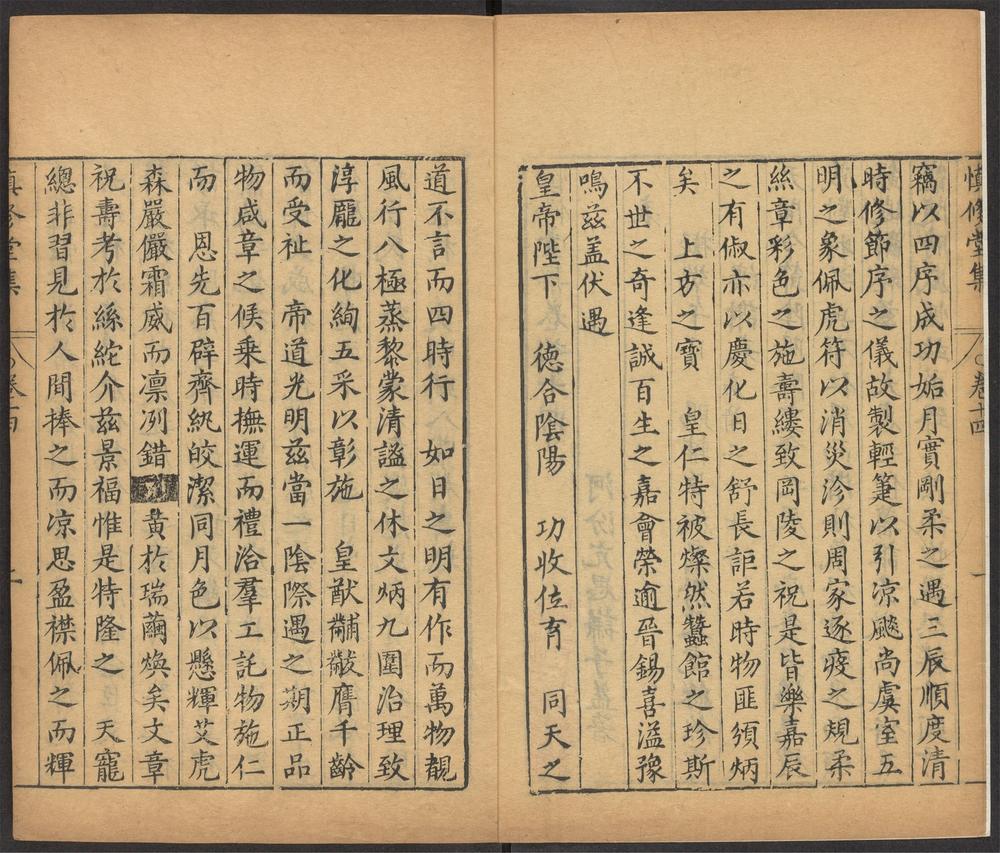 慎修堂集 卷十四 一
竊以四序成功姤月實剛柔之遇三辰順度清
時修節序之儀故製輕箑以引凉颸尚虞室五
明之象佩虎符以消災沴則周家逐疫之規柔
絲章彩色之施壽縷致岡陵之祝是皆樂嘉辰
之有俶亦以慶化日之舒長詎若時物匪須炳
矣 上方之寶 皇仁特被燦然蠶館之珍斯
不世之奇逢誠百生之嘉會榮逾晉錫喜溢豫
鳴茲盖伏遇
皇帝陛下 德合陰陽 功收位育 同天之
道不言而四時行 如日之明有作而萬物覩
風行八極蒸黎蒙清謐之休文炳九圍治理致
淳龐之化絢五采以彰施 皇猷黼黻膺千齡
而受祉 帝道光明茲當一陰際遇之期正品
物咸章之候乗時撫運而禮洽羣工託物施仁
而 恩先百辟齊紈皎潔同月色以懸輝艾虎
森嚴儼霜威而凛冽錯 黃於瑞繭煥矣文章
祝壽考於絲紽介茲景福惟是特隆之 天寵
總非習見於人間捧之而凉思盈襟佩之而輝
慎修堂集 卷十四 二